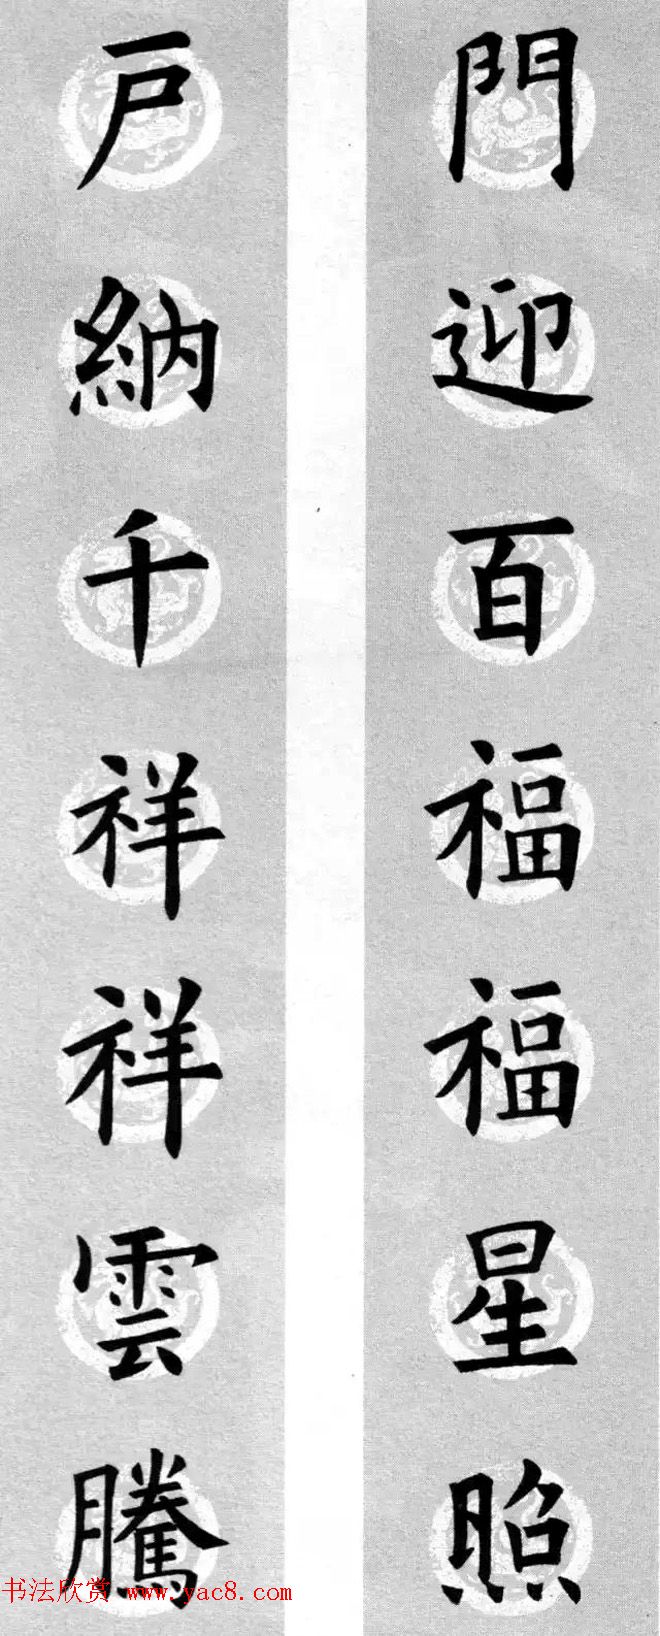 門迎百福福星照
戶納千祥祥雲騰
书法欣赏 www.yac8.com